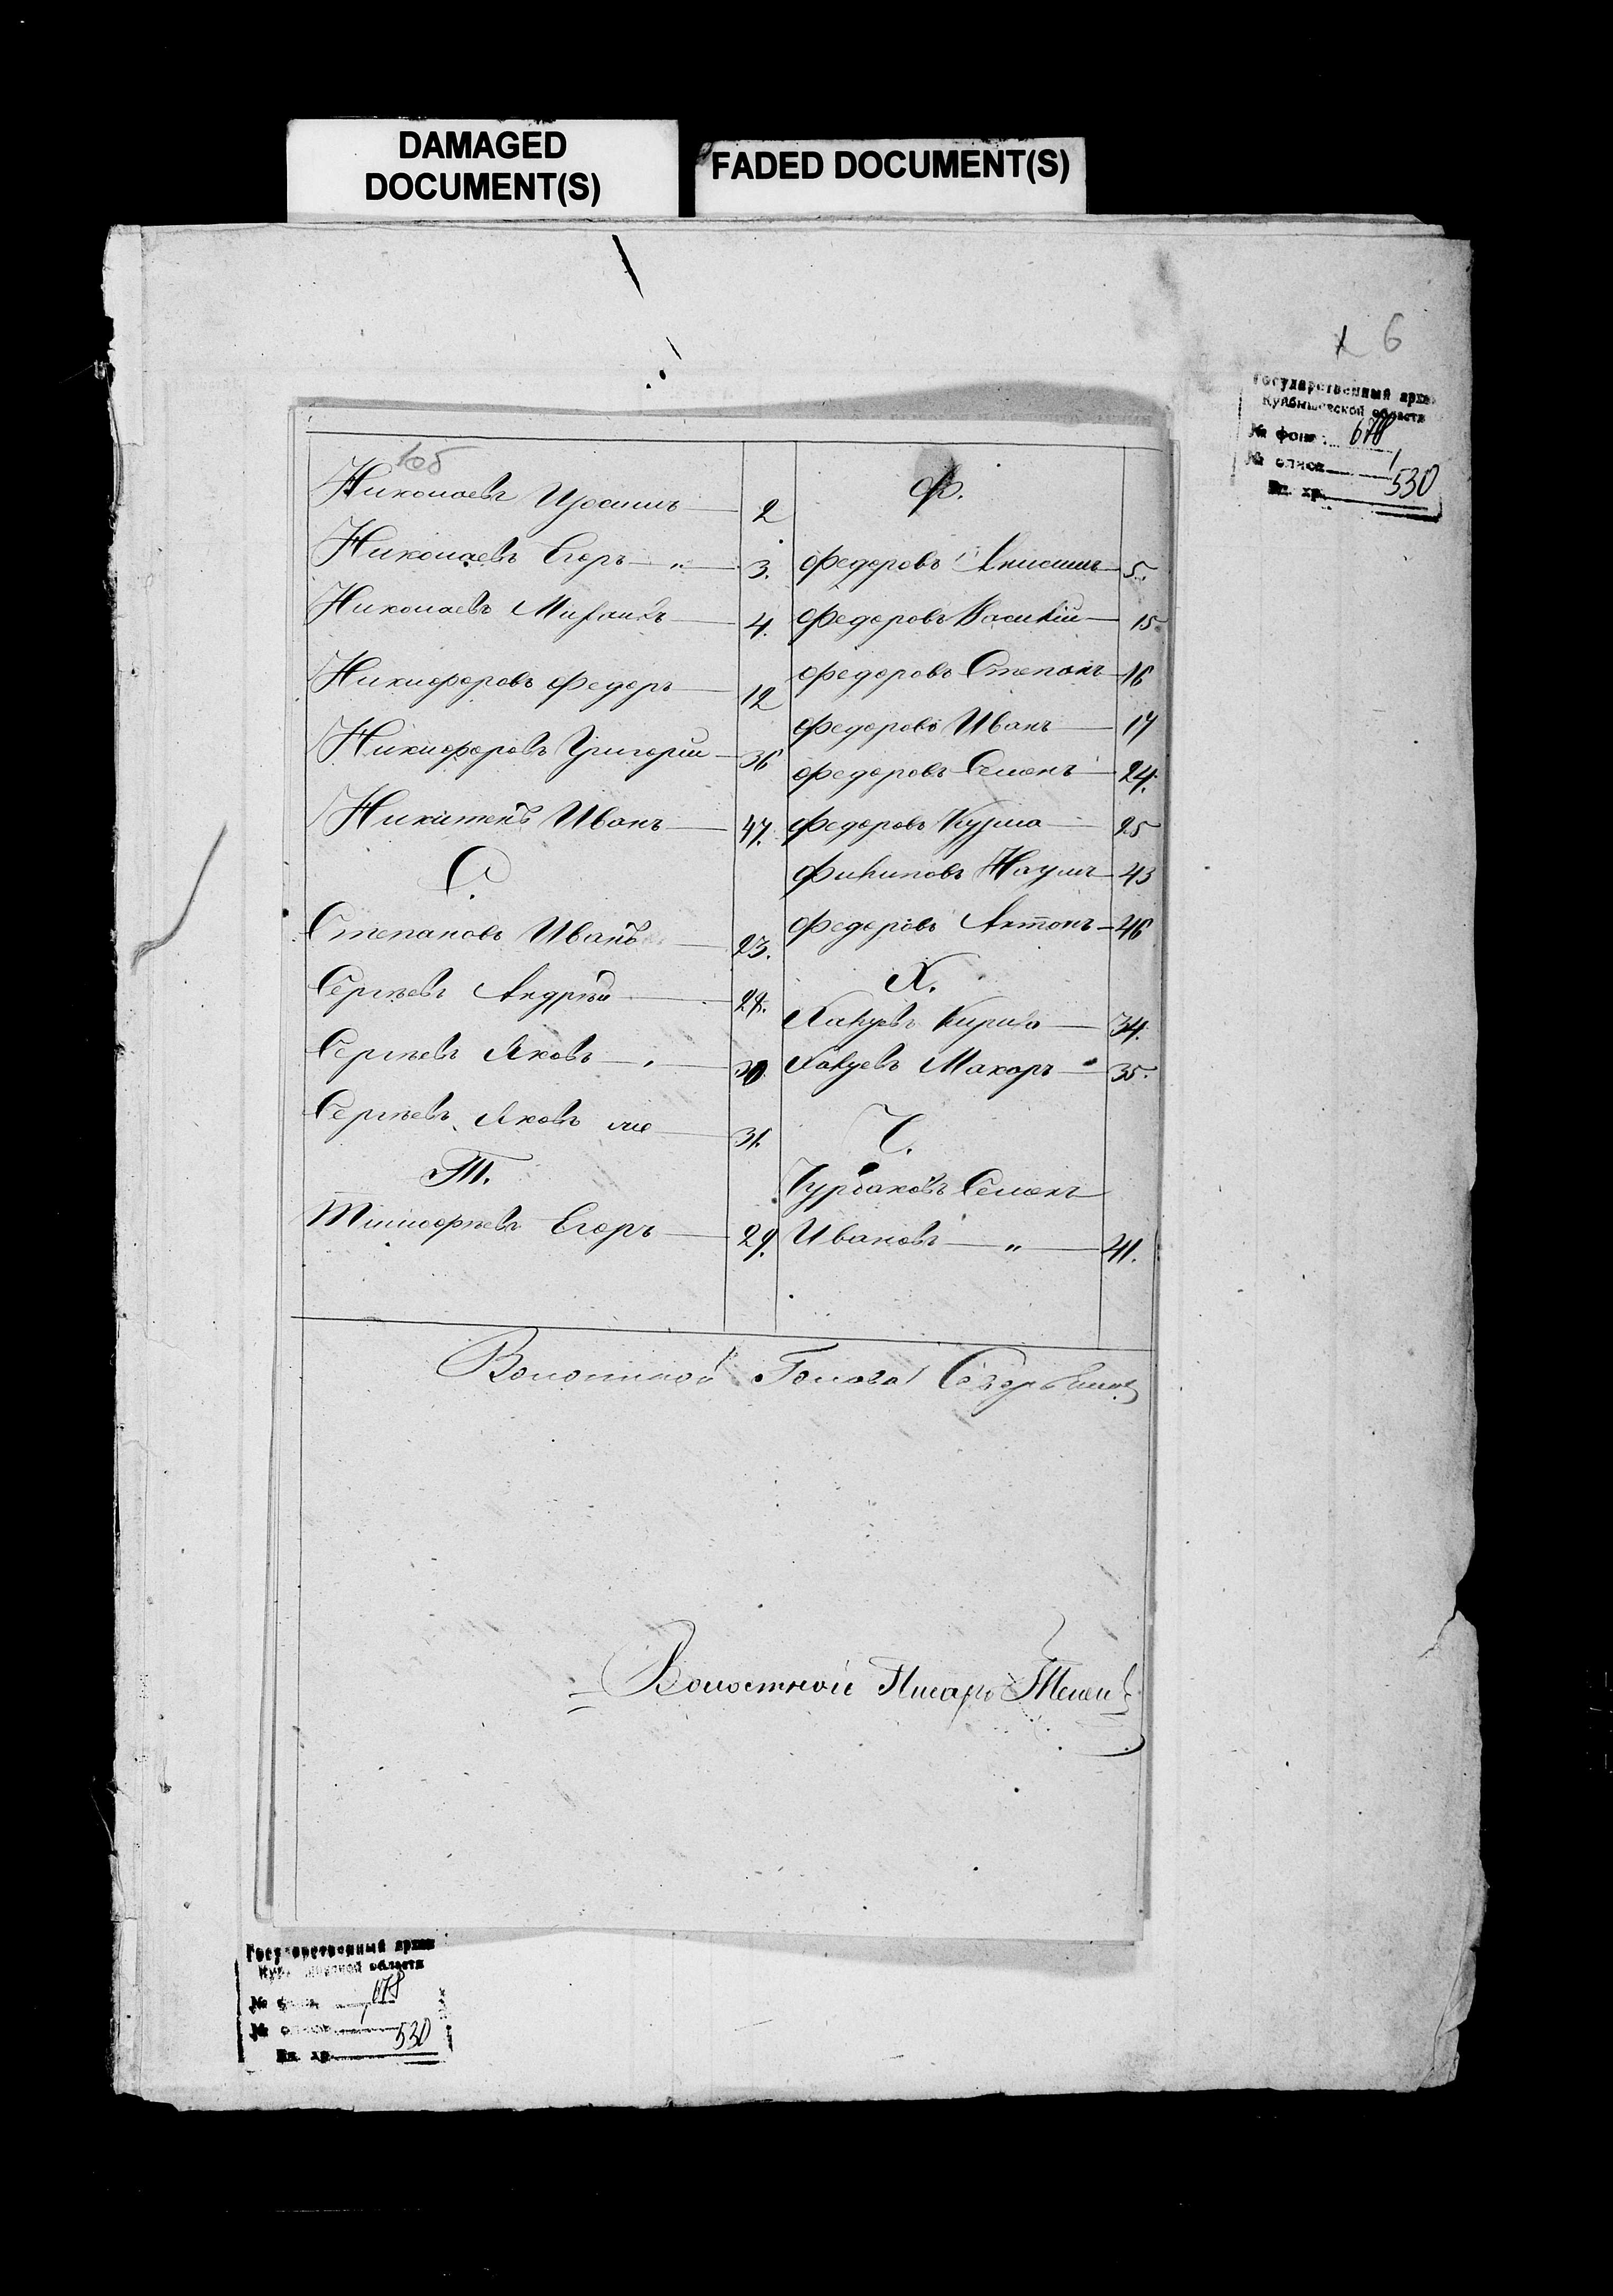 DAMAGED
DOCUMENT(S)
FADED DOCUMENT(S)
6
Государственный архив
Куйбышевской области
№ фонд. 678
№ описи 1
Ед. хр. 530
1об
Николаевъ 2
Николаевъ Егоръ — „ — 3.
Николаевъ Михаилъ — 4.
Никифоровъ Федоръ — 12
Никифоровъ Григорий — 36
Никитинъ Иванъ — 47.
С.
Степановъ Иванъ — 23.
Сергѣевъ Андрѣй — 28.
Сергѣевъ Яковъ — 30.
Сергѣевъ Яковъ — 31.
Т.
Тимофѣевъ Егоръ — 29.
Ф.
Федоровъ Анисимъ — 5.
Федоровъ Василій — 15
Федоровъ Степанъ — 16
Федоровъ Иванъ — 17
Федоровъ Семенъ — 24.
Федоровъ Кузма — 25
Филиповъ Наумъ — 43
Федоровъ Антонъ — 46
Х.
Кирила — 34.
Макаръ — 35.
Ч.
Чурбаковъ Семенъ
Ивановъ — „ — 41.
Волостной Голова
Волостной Писарь
Государственный архив
Куйбышевской области
№ фонд. 678
№ описи 1
Ед. хр. 530